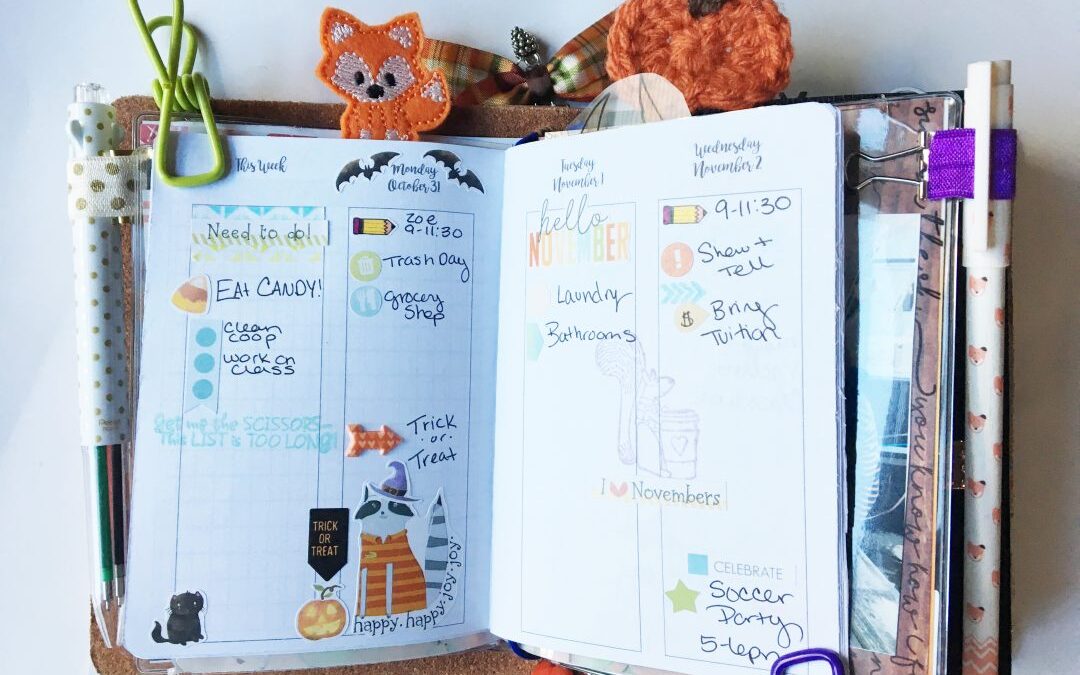 This Week
Need to do!
EAT CANDY!
clean
coop
work on
class
Get me the SCISSORS...
This LIST is TOO LONG!
Monday
October 31
Zoe
9-11:30
Trash Day
Grocery
Shop
Trick
or
Treat
TRICK
OR
TREAT
happy. happy. joy. joy.
Tuesday
November 1
hello
NOVEMBER
Laundry
Bathrooms
I Novembers
Wednesday
November 2
9-11:30
Show +
Tell
Bring
Tuition
CELEBRATE
Soccer
Party
5-6pm